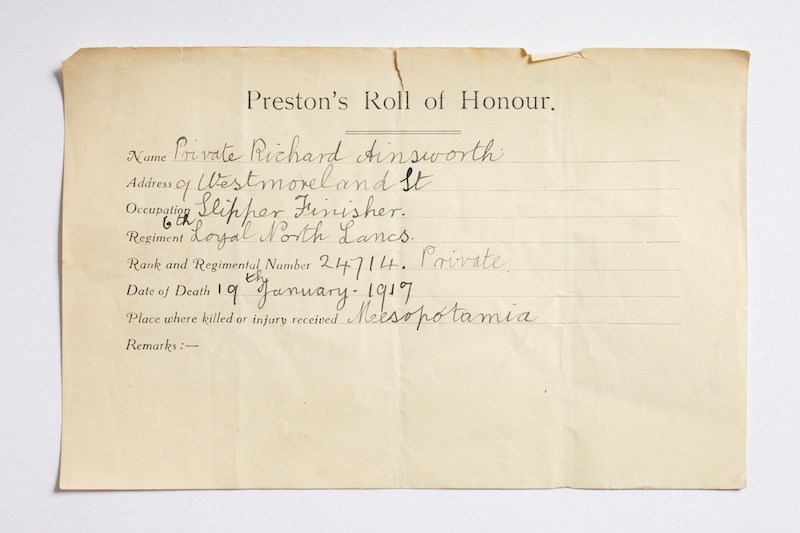 Preston's Roll of Honour.
Name Private Richard Ainsworth
Address 9 Westmoreland St
Occupation Slipper Finisher.
Regiment 6th Loyal North Lancs.
Rank and Regimental Number 24714. Private.
Date of Death 19th January - 1917
Place where killed or injury received Meesopotamia
Remarks :—